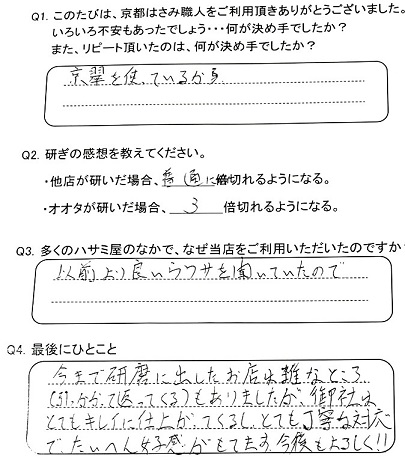 Q1. このたびは、京都はさみ職人をご利用頂きありがとうございました。
いろいろ不安もあったでしょう・・・何が決め手でしたか?
また、リピート頂いたのは、何が決め手でしたか?
京翠を使っているから
Q2. 研ぎの感想を教えてください。
・他店が研いだ場合、普通に倍切れるようになる。
・オオタが研いだ場合、3倍切れるようになる。
Q3. 多くのハサミ屋のなかで、なぜ当店をご利用いただいたのですか
以前より良いウワサを聞いていたので
Q4. 最後にひとこと
今まで研磨に出したお店は雑なところ
(刃がかけて返ってくる)もありましたが、御社は
とてもキレイに仕上がってくるし、とても丁寧な対応
でたいへん好感がもてます。今後もよろしく!!